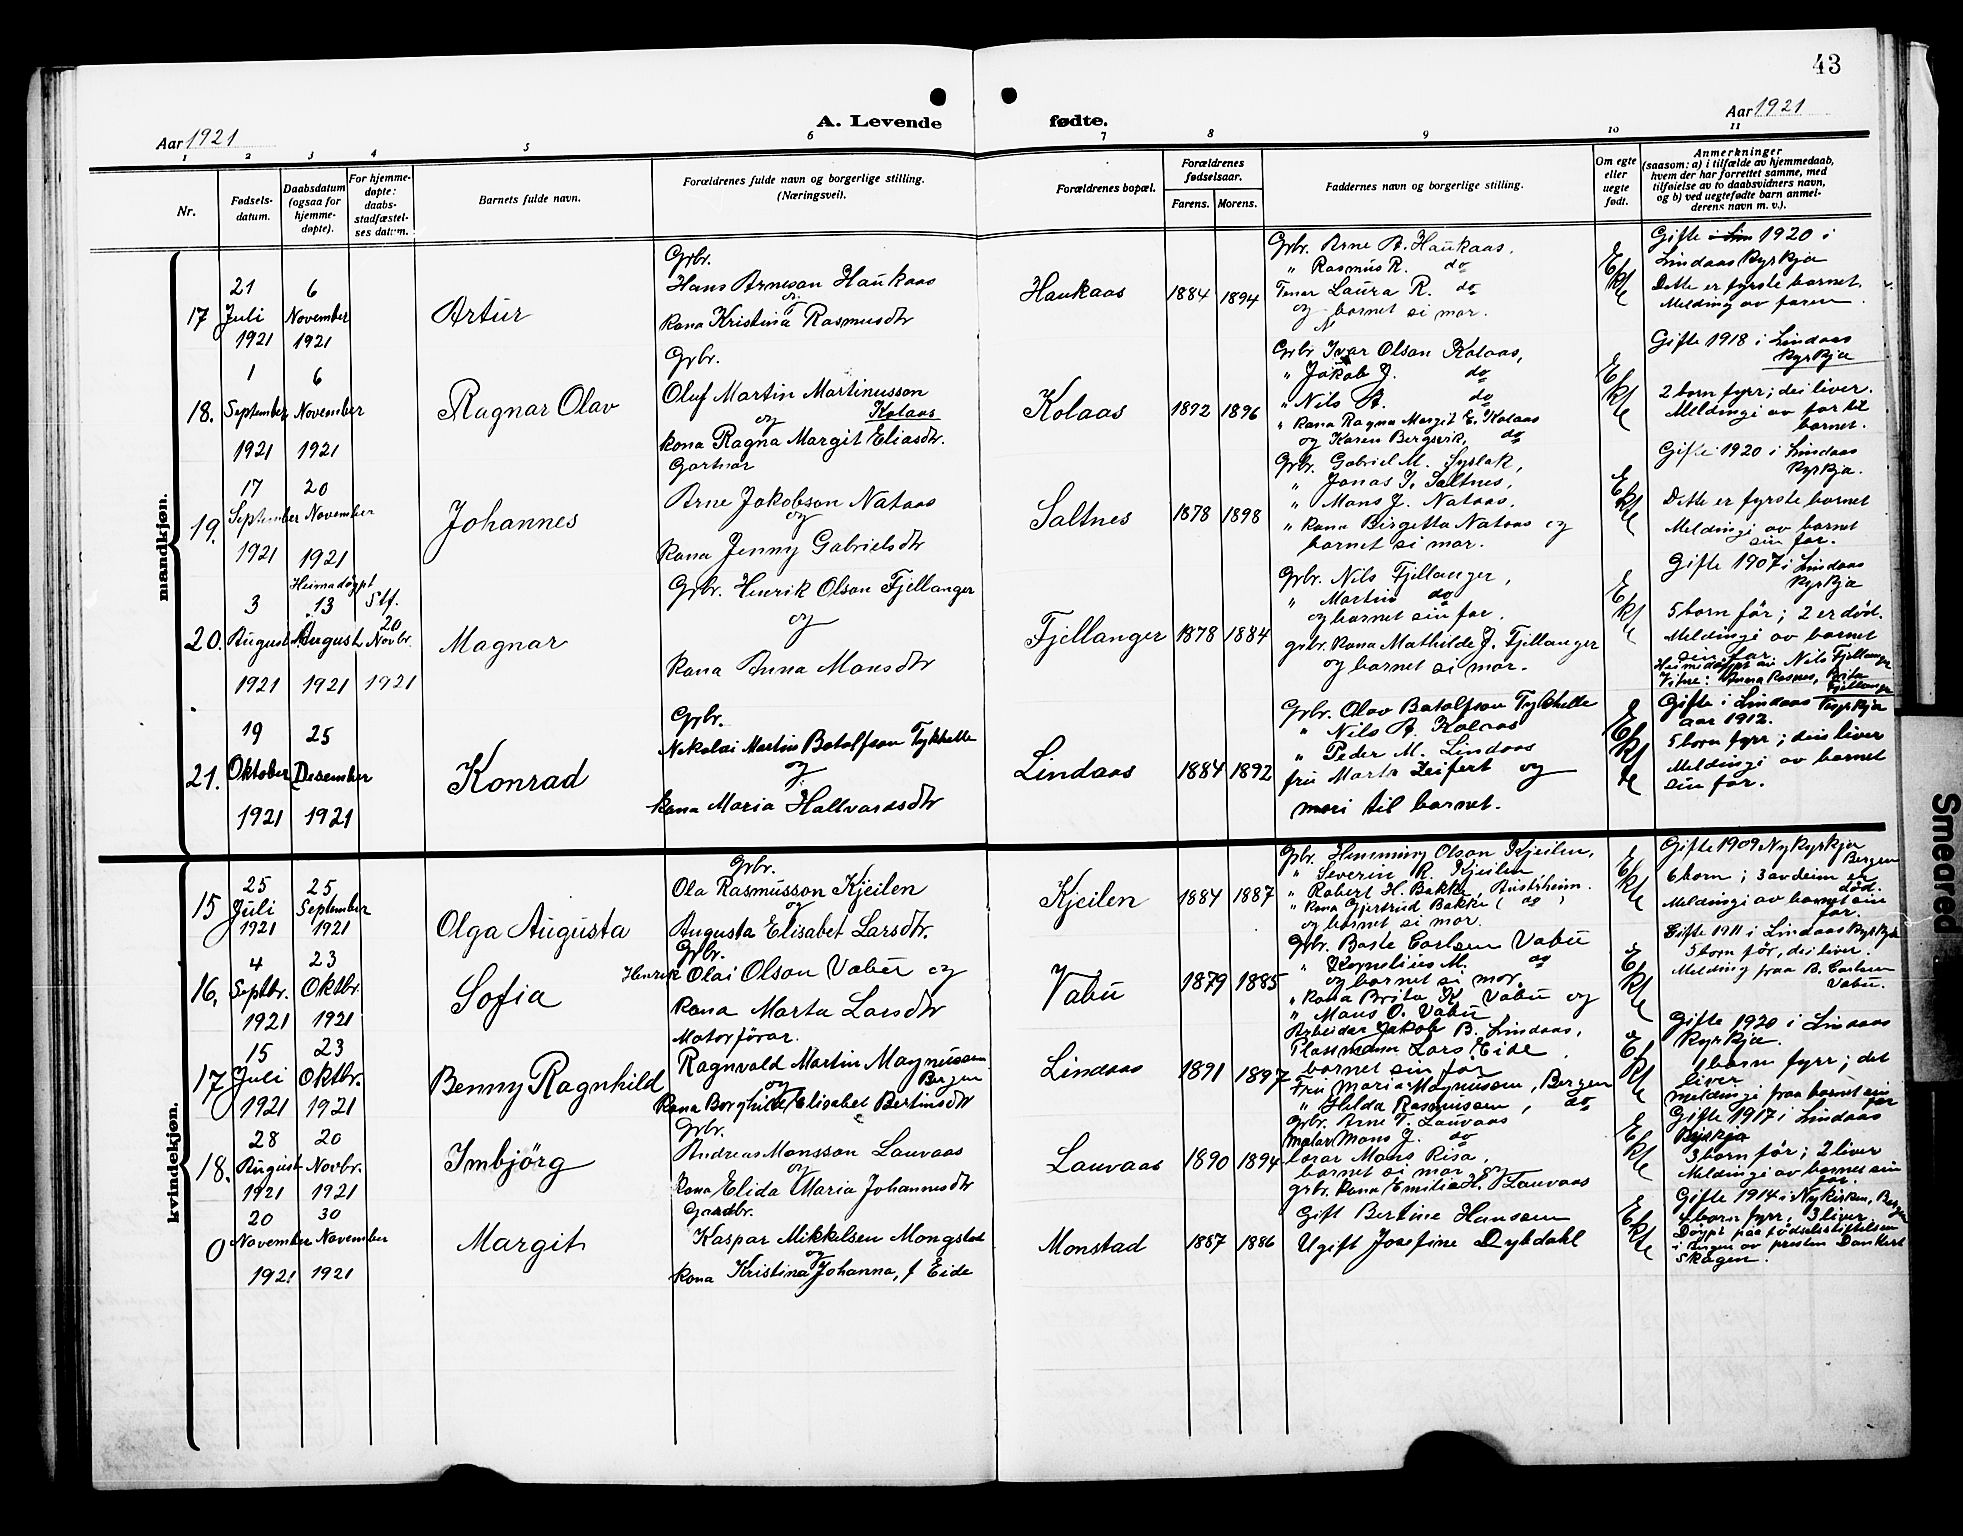 43
Aar 1921
A. Levende fødte.
Aar 1921
1 2 3 4 5 6 7 8 9 10 11
Nr.
Fødsels-
datum.
Daabsdatum
(ogsaa for
hjemme-
døpte).
For hjemme-
døpte:
daabs-
stadfæstel-
ses datum.
Barnets fulde navn.
Forældrenes fulde navn og borgerlige stilling.
(Næringsvei).
Forældrenes bopæl.
Forældrenes
fødselsaar.
Farens. Morens.
Faddernes navn og borgerlige stilling.
Om egte
eller
uegte
født.
Anmerkninger
(saasom: a) i tilfælde av hjemmedaab,
hvem der har forrettet samme, med
tilføielse av to daabsvidners navn,
og b) ved uegtefødte barn anmel-
derens navn m. v.).
mandkjøn.
17
21
Juli
1921
6
November
1921
Artur
Grbr.
Hans Arneson Haukaas
kona Kristina Rasmusdtr
Haukaas
1884 1894
Grbr. Arne A. Haukaas,
" Rasmus R. do
Laura R. do
og barnet si mor.
Ekte
Gifte 1920 i
Lindaas Kyrkja
Dette er fyrste barnet.
Melding av faren.
18.
1
September
1921
6
November
1921
Ragnar Olav
Grbr.
Oluf Martin Martinusson
og Kolaas
kona Ragna Margit Eliasdtr.
Kolaas
1892 1896
Grbr Ivar Olson Kolaas,
" Jakob J. do
" Nils A. do
" kona Ragna Margit E. Kolaas
og Karen Bergsvik, do
Ekte
Gifte 1918 i Lindaas
Kyrkja
2 born fyrr; dei liver.
Meldingi av far til
barnet.
19.
17
September
1921
20
November
1921
Johannes
Gartnar
Arne Jakobson Nataas
og
kona Jenny Gabrielsdtr
Saltnes
1878 1898
Grbr. Gabriel M. Syslak,
" Jonas J. Saltnes,
" Mons J. Nataas,
" kona Birgetta Nataas og
barnet si mor.
Ekte
Gifte 1920 i Lindaas
Kyrkja.
Dette er fyrste barnet
Meldingi av barnet
sin far.
20.
3
August
1921
Heimadøypt
13
August
1921
Stf.
20
Novbr.
1921
Magnar
Grbr. Henrik Olson Fjellanger
og
kona Anna Monsdtr
Fjellanger
1878 1884
Grbr. Nils Fjellanger,
" Martin do
og barnet sin far.
grbr. kona Mathilde J. Fjellanger
og barnet si mor.
Ekte
Gifte 1907 i Lindaas
Kyrkja
5 born før; 2 er død.
Meldingi av barnet
sin far.
Heimedøypt av Nils Fjellanger
Vitne: Anna Rosnes, Brita
Fjellanger
21.
19
Oktober
1921
25
Desember
1921
Konrad
Grbr.
Nikolai Martin Botolfson Tykhelle
og
kona Maria Hallvardsdtr
Lindaas
1884 1892
Grbr. Olav Botolfson Tykhelle
" Nils A. Kolaas
" Peder M. Lindaas
fru Marta Zeifert og
mori til barnet.
Ekte
Gifte i Lindaas Kyrkja
aar 1912.
5 born fyrr; dei liver
Meldingi av barnet
sin far.
kvindekjøn.
15
25
Juli
1921
25
September
1921
Olga Augusta
Grbr.
Ola Rasmusson Kjeilen
og
Augusta Elisabet Larsdtr.
Kjeilen
1884 1887
Grbr. Hemming Olson Kjeilen,
" Severin R. Kjeilen
" Robert H. Bakke, Austrheim.
" kona Gjertrud Bakke, do,
og barnet si mor.
Ekte
Gifte 1909 Nykyrkja
Bergen
6 born; 3 av deim er
død.
Meldingi av barnet sin
far.
16,
4
Septbr.
1921
23
Oktbr.
1921
Sofia
Grbr.
Henrik Olai Olson Vabø og
kona Marta Larsdtr
Vabø
1879 1885
Grbr. Basle Carlsen Vabø
" Kornelius M. do
og barnet si mor,
" kona Brita K. Vabø og
" Mons O. Vabø
Ekte
Gifte 1911 i Lindaas Kyrkja
5 born før, dei liver.
Melding fraa B. Carlsen
Vabø.
17
15
Juli
1921
23
Oktbr.
1921
Benny Ragnhild
Motorførar.
Ragnvald Martin Magnussen
og Bergen
Kona Borghild Elisabet Bertinsdtr
Lindaas
1891 1897
Arbeidar Jakob B. Lindaas,
Plassmann Lars Eide.
barnet sin far
Fru Maria Magnussen, Bergen
" Hilda Rasmussen, do,
Ekte
Gifte 1920 i Lindaas
Kyrkja.
1 born fyrr; det
liver
Meldingi fraa barnet sin
far
18.
28
August
1921
20
Novbr.
1921
Imbjörg
Grbr.
Andreas Monsson Lauvaas
og
kona Elida Maria Johannesdtr
Lauvaas
1890 1894
Grbr. Arne T. Lauvaas
Malar Mons J. do
lærar Mons Risa,
barnet si mor og
grbr. kona Emilie H. Lauvaas
Ekte
Gifte 1917 i Lindaas
Kyrkja
3 born før; 2 liver
Meldingi av barnet sin
far.
0
20
November
1921
30
November
1921
Margit
Gardbr.
Kaspar Mikkelsen Mongstad
og
kona Kristina Johanna, f Eide
Monstad
1887 1886
Gift Bertine Hansen
Ugift Josefine Dybdahl
Ekte
Gifte 1914 i Nykirken, Bergen
4 born fyrr, 3 liver
Døypt paa fødselsstiftelsen
i Bergen av presten Dankert
Skagen.
Smeared